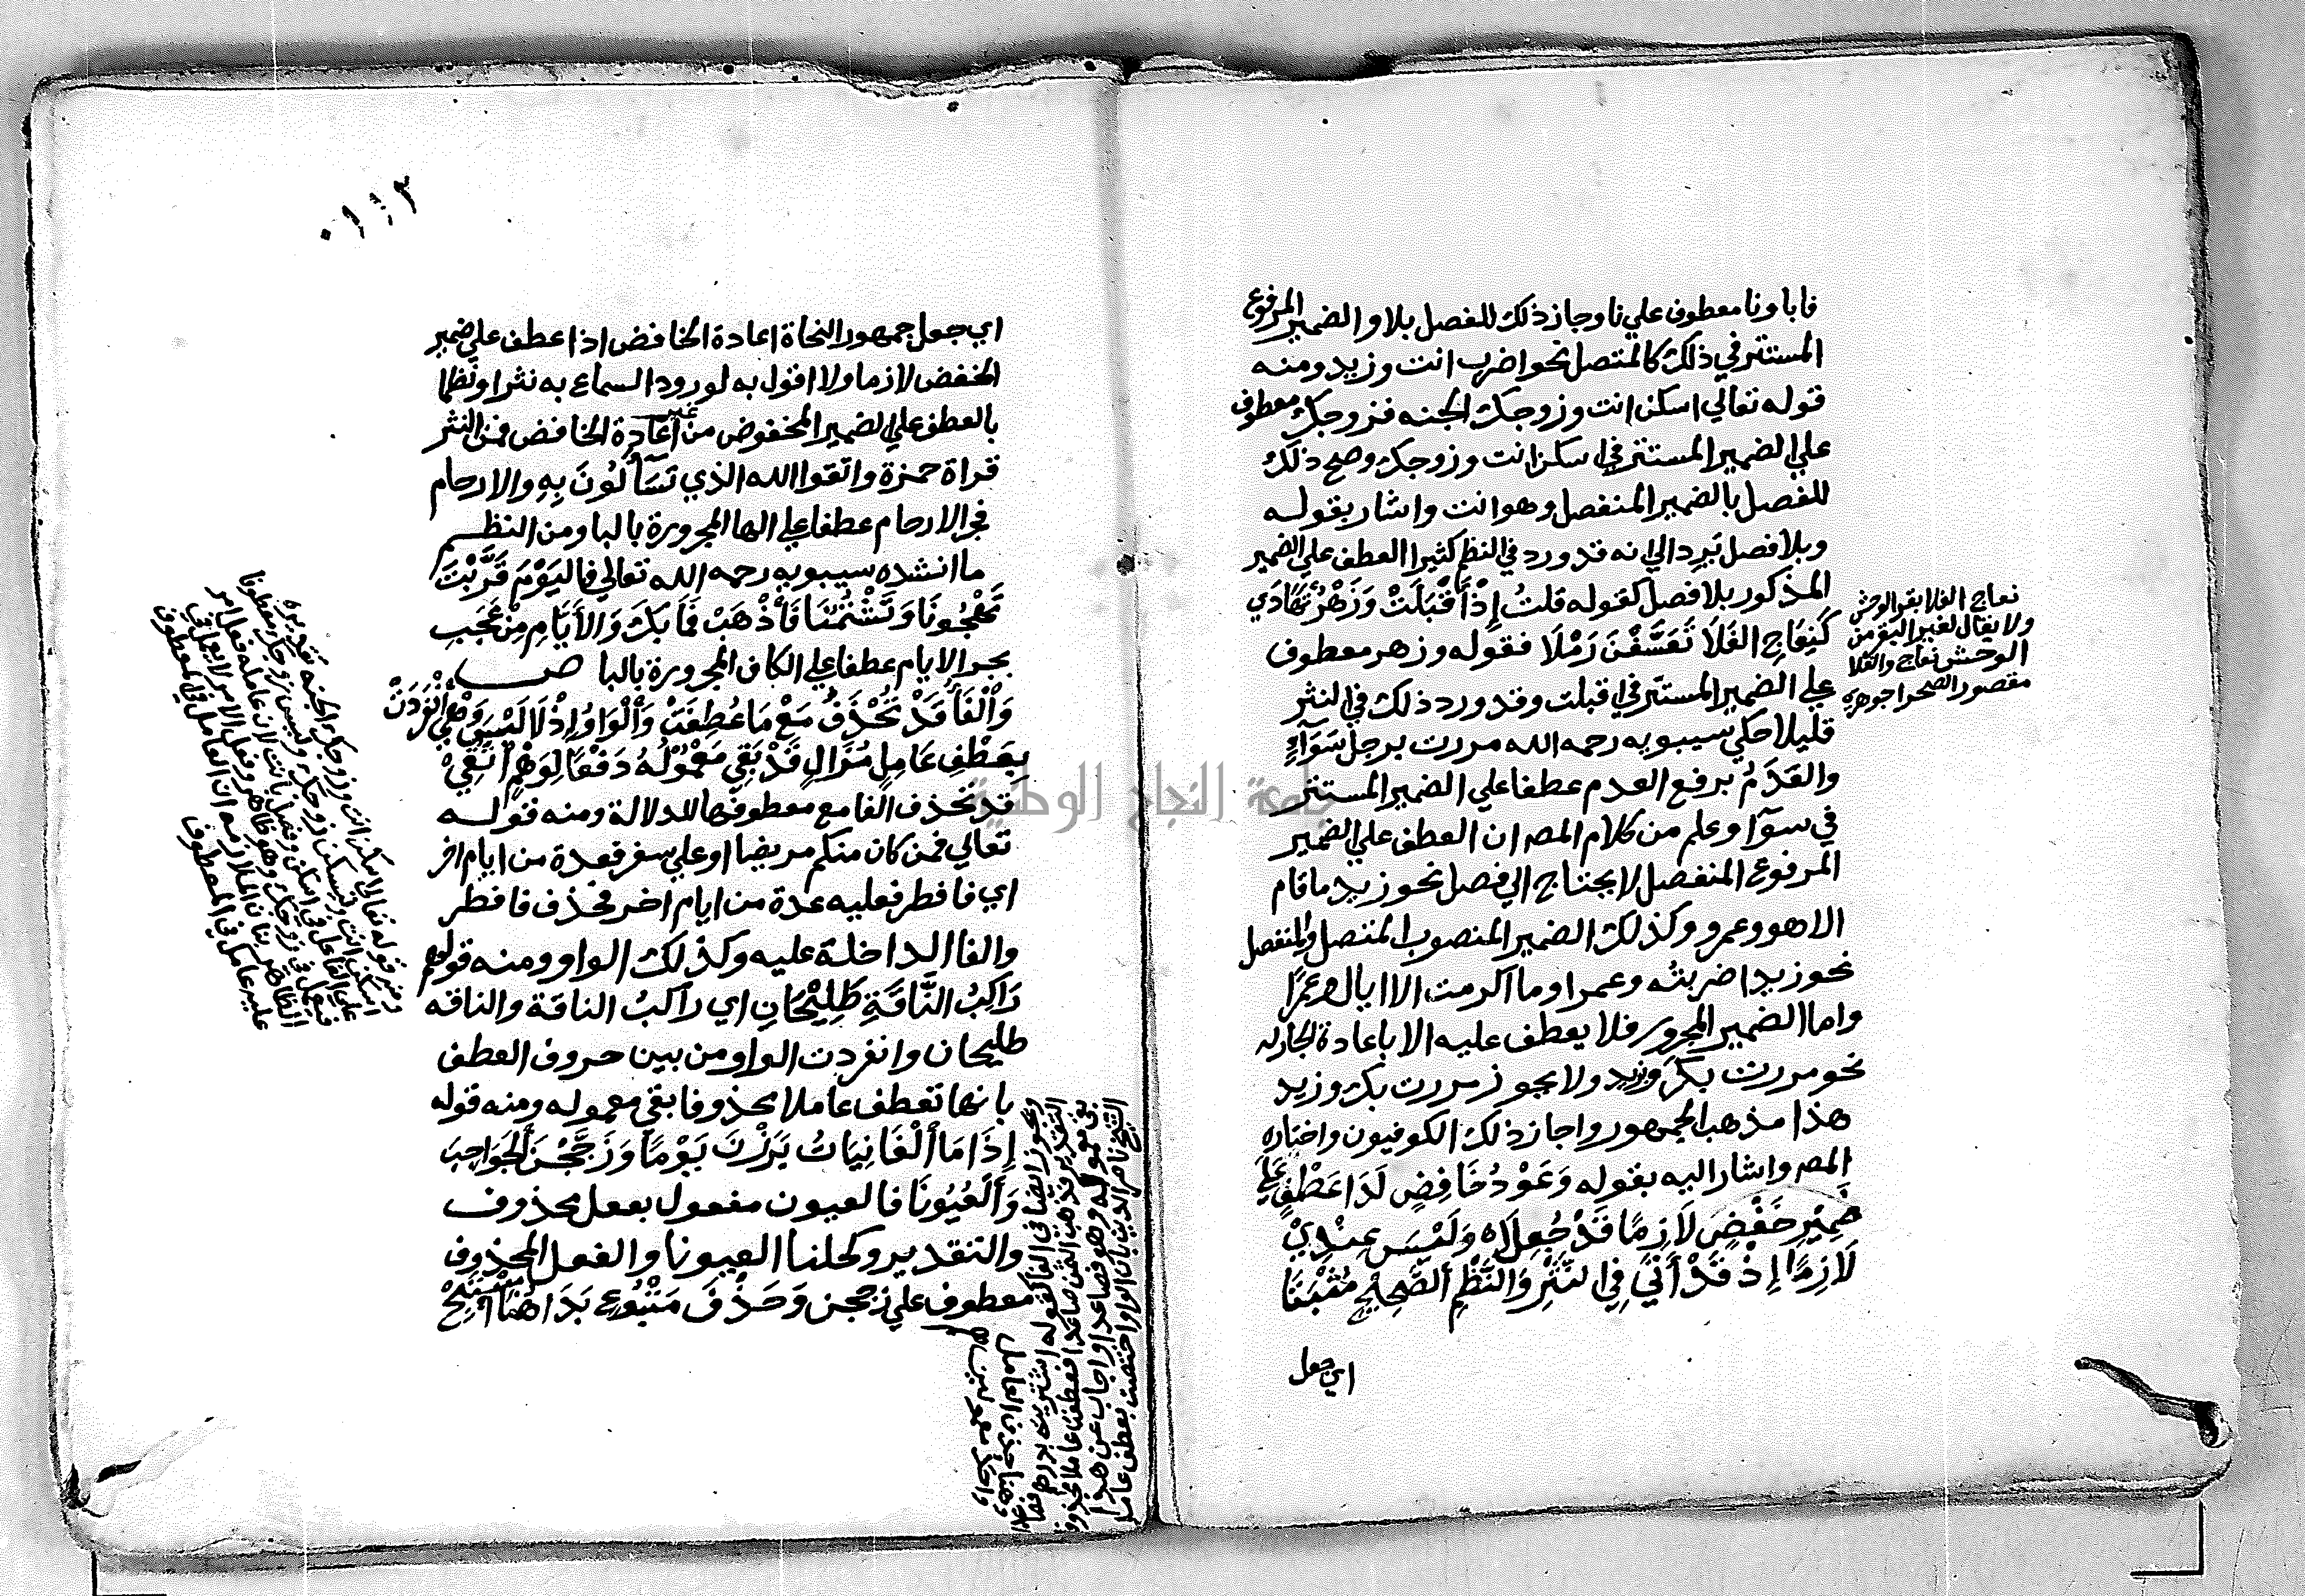 فاباونا معطوف علي نا وجاز ذلك للفصل بلا والضمير المرفوع
المستتر في ذلك كالمتصل نحو اضرب انت وزيد ومنه
قوله تعالي اسكن انت وزوجك الجنه فزوجك معطوف
علي الضمير المستتر في اسكن انت وزوجك وصح ذلك
للفصل بالضمير المنفصل وهو انت واشار بقولـه
وبلا فصل يَرِد الي انه قد ورد في النظم كثيرا العطف علي الضمير
المذكور بلا فصل كقوله قلتُ إِذْ أَقْبَلَتْ وَزَهْرٌ تَهَادَي
كَنِعَاجِ الفَلَا تَعَسَّفْنَ رَمْلَا فقوله وزهر معطوف
علي الضمير المستتر في اقبلت وقد ورد ذلك في النثر
قليلا حكي سيبويه رحمه الله مررت برجل سَوَآءٍ
والعَدَمُ برفع العدم عطفا علي الضمير المستتر
في سوآ وعلم من كلام المصـ ان العطف علي الضمير
المرفوع المنفصل لا يحتاج الي فصل نحو زيد ما قام
الا هو وعمرو وكذلك الضمير المنصوب المتصل والمنفصل
نحو زيد اضربته وعمرا وما اكرمت الا اياك وعمرًا
واما الضمير المجرور فلا يعطف عليه الا باعادة الجار له
نحو مررت بك وبزيد ولا يجوز مررت بك وزيد
هذا مذهب الجمهور واجاز ذلك الكوفيون واختاره
المصـ واشار اليه بقوله وَعَوْدُ خَافِضٍ لَدَا عَطْفٍ عَلَي
ضَمِيْرِ خَفْضٍ لَازِمًا قَدْ جُعِلَاه وَلَيْسَ عِنْدِيْ
لَازِمًا إِذْ قَدْ أَتَيَ فِي النَّثْرِ وَالنَّظْمِ الصَّحِيْحِ مُثْبَتَا
اي جعل
نعاج الفلا بقر الوحش
ولا يقال لغير البقر من
الوحش نعاج والفلا
مقصور الصحرا جوهري
٠١١٣
اي جعل جمهور النحاة اعادة الخافض اذا عطف علي ضمير
الخفض لازما ولا اقول به لورود السماع به نثرا ونظما
بالعطف علي الضمير المخفوض من غير اعادة الخافض فمن النثر
قراة حمزة واتقوا الله الذي تَسَآلُونَ بِهِ والارحام
بجر الارحام عطفا علي الها المجرورة بالبا ومن النظـم
ما انشده سيبويه رحمه الله تعالي فاليَوْمَ قَرَّبْتَ
تَهْجُونَا وَتَشْتُمُنَا فَأذْهَبْ فَمَا بِكَ وَالأَيَّامِ مِنْ عَجَبِ
بجر الايام عطفا علي الكاف المجرورة بالبا ص
وَاْلفَأ قَدْ تُحْذَفُ مَعْ مَا عُطِفَتْ وَاْلوَاوُ إِذْ لَا لَبْسَ وَهْيَ أنْفَرَدَتْ
بِعَطْفِ عَامِلٍ مُزَالٍ قَدْ بَقِيَ مَعْمُولُهُ دَفْعًا لِوَهْمٍ أتُّقِيْ
قد تحذف الفا مع معطوفها للدلالة ومنه قولـه
تعالي فمن كان منكم مريضا او علي سفر فعدة من ايام اخر
اي فافطر فعليه عدة من ايام اخر فحذف فافطر
والفا الداخلة عليه وكذلك الواو ومنه قولهم
رَاكِبُ النَّاقَةِ طَلِيْحَانِ اي راكبُ الناقة والناقه
طليحان وانفردت الواو من بين حروف العطف
بانها تعطف عاملا محذوفا بقي معموله ومنه قوله
إِذَا مَا اْلغَانِيَاتُ بَرَزْنَ يَوْمًا وَزَجَّجْنَ اْلحَوَاجِبَ
وَالْعُيُونَا فالعيون مفعول بفعل محذوف
والتقدير وكحلنا العيونا والفعل المحذوف
معطوف علي زججن وَحَذْفَ مَتْبُوعٍ بَدَا هُنَا اسْتَبِحْ
قوله تعالي اسكن انت وزوجك الجنه تقديره
اسكن انت ولتسكن زوجك وليس زوجك معطوفا
علي الفاعل في اسكن
عليه عامل في المعطوف